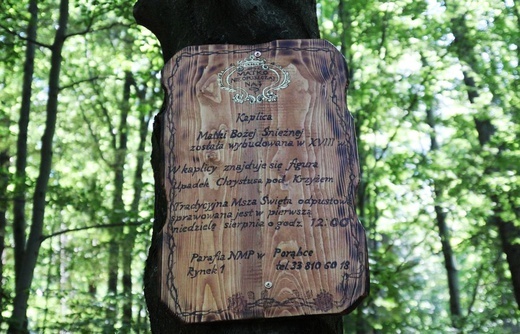 MATKO
NAS
Kaplica
Matki Bożej Śnieżnej
została wybudowana w XVIII
W kaplicy znajduje się figura
Upadek Chrystusa pod Krzyżem
Tradycyjna Msza Święta odpustowa
sprawowana jest w pierwszą
niedzielę sierpnia o godz. 12:00
Parafia NMP w Porąbce
Rynek 1 tel. 33 810 60 18